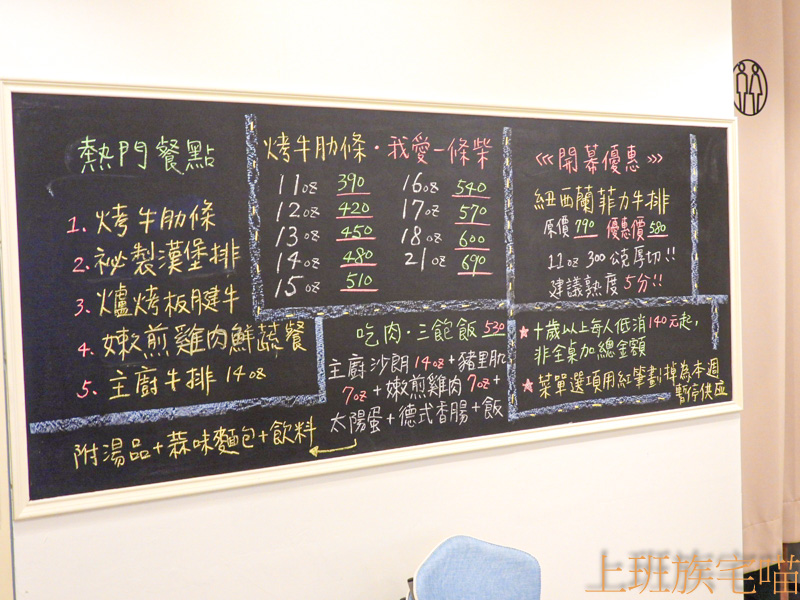 熱門餐點
1. 烤牛肋條
2. 祕製漢堡排
3. 爐烤板腱牛
4. 嫩煎雞肉鮮蔬餐
5. 主廚牛排 14oz
附湯品+蒜味麵包+飲料
烤牛肋條・我愛一條柴
11oz 390
12oz 420
13oz 450
14oz 480
15oz 510
16oz 540
17oz 570
18oz 600
21oz 690
吃肉・三飽飯 530
主廚沙朗 14oz+豬里肌
7oz+嫩煎雞肉 7oz+
太陽蛋+德式香腸+飯
<<<開幕優惠>>>
紐西蘭菲力牛排
原價 790 優惠價 580
11oz 300公克厚切!!
建議熟度 5分!!
★十歲以上每人低消140元起,
非全桌加總金額
★菜單選項用紅筆劃掉為本週
暫停供應
上班族宅喵